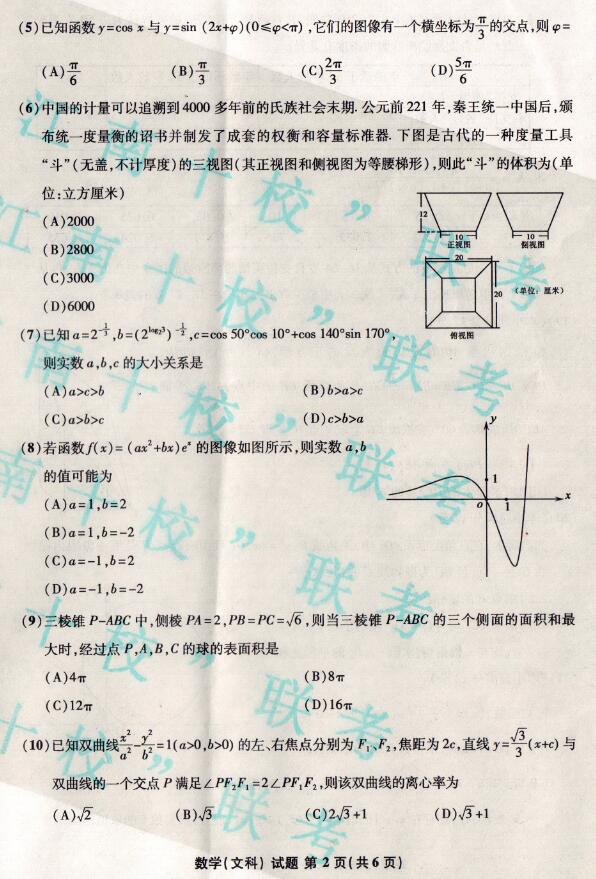 (5)已知函数 y=cos x 与 y=sin (2x+φ)(0≤φ<π) ,它们的图像有一个横坐标为π/3的交点,则 φ=
(A)π/6 (B)π/3 (C)2π/3 (D)5π/6
(6)中国的计量可以追溯到 4000 多年前的氏族社会末期. 公元前 221 年,秦王统一中国后,颁
布统一度量衡的诏书并制发了成套的权衡和容量标准器. 下图是古代的一种度量工具
“斗”(无盖,不计厚度)的三视图(其正视图和侧视图为等腰梯形),则此“斗”的体积为(单
位:立方厘米)
(A)2000
(B)2800
(C)3000
(D)6000
12
10
正视图
10
侧视图
20
20
(单位: 厘米)
俯视图
(7)已知 a=2^{-1/3},b=(2^{log₂3})^{-1/2},c=cos 50°cos 10°+cos 140°sin 170°,
则实数 a,b,c 的大小关系是
(A)a>c>b (B)b>a>c
(C)a>b>c (D)c>b>a
(8)若函数 f(x)=(ax²+bx)eˣ 的图像如图所示,则实数 a,b
的值可能为
(A)a=1,b=2
(B)a=1,b=-2
(C)a=-1,b=2
(D)a=-1,b=-2
y
1
O
1
x
(9)三棱锥 P-ABC 中,侧棱 PA=2,PB=PC=√6,则当三棱锥 P-ABC 的三个侧面的面积和最
大时,经过点 P,A,B,C 的球的表面积是
(A)4π (B)8π
(C)12π (D)16π
(10)已知双曲线x²/a²-y²/b²=1(a>0,b>0) 的左、右焦点分别为 F₁、F₂,焦距为 2c,直线 y=√3/3(x+c) 与
双曲线的一个交点 P 满足∠PF₂F₁=2∠PF₁F₂,则该双曲线的离心率为
(A)√2 (B)√3 (C)2√3+1 (D)√3+1
数学(文科) 试题 第 2 页(共 6 页)
江南十校”联考
江南十校”联考
南十校”联考
南十校”联考
十校”联考
十校”联考